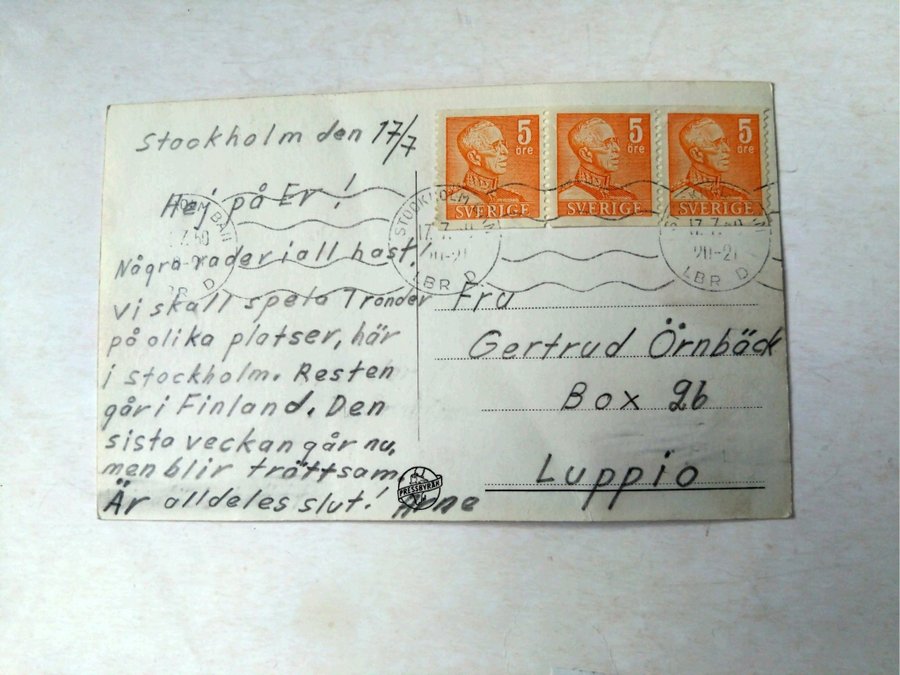 Stockholm den 17/7
Hej på Er!
Några rader i all hast!
Vi skall spela Tronder
på olika platser, här
i Stockholm. Resten
går i Finland. Den
sista veckan går nu,
men blir tröttsam.
Är alldeles slut! Arne
5 öre
SVERIGE
5 öre
SVERIGE
5 öre
SVERIGE
STOCKHOLM BAN
17.7.50
20-21
LBR D
17.7.50
20-21
LBR D
Fru
Gertrud Örnbäck
Box 26
Luppio
PRESSBYRÅN